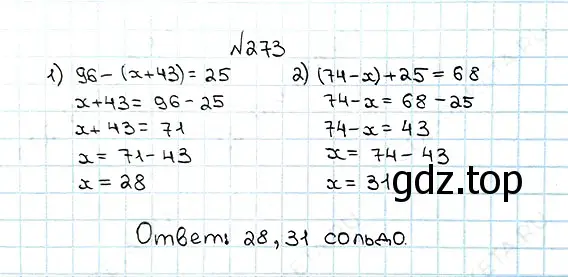 №273
1) 96-(x+43)=25
x+43=96-25
x+43=71
x=71-43
x=28
2) (74-x)+25=68
74-x=68-25
74-x=43
x=74-43
x=31
gdz.top
Ответ: 28, 31 сольдо.